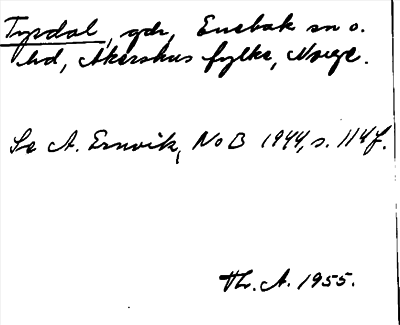 Tysdal, gdr, Enebak sn o.
hd, Akershus fylke, Norge.
Se A. Ernvik, NoB 1944, s. 114 f.
Th. A. 1955.